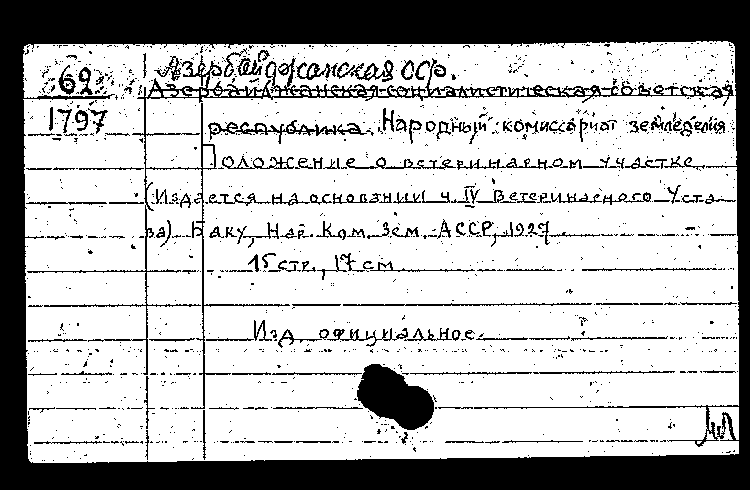 62
1797
Азербайджанская ССР.
Азербайджанская социалистическая советская
республика. Народный комиссариат земледелия
Положение о ветеринарном участке.
(Издается на основании ч. IV Ветеринарного Уста-
ва) Баку, Нар. Ком. Зем. АССР, 1927.
15 стр., 17 см
Изд. официальное.